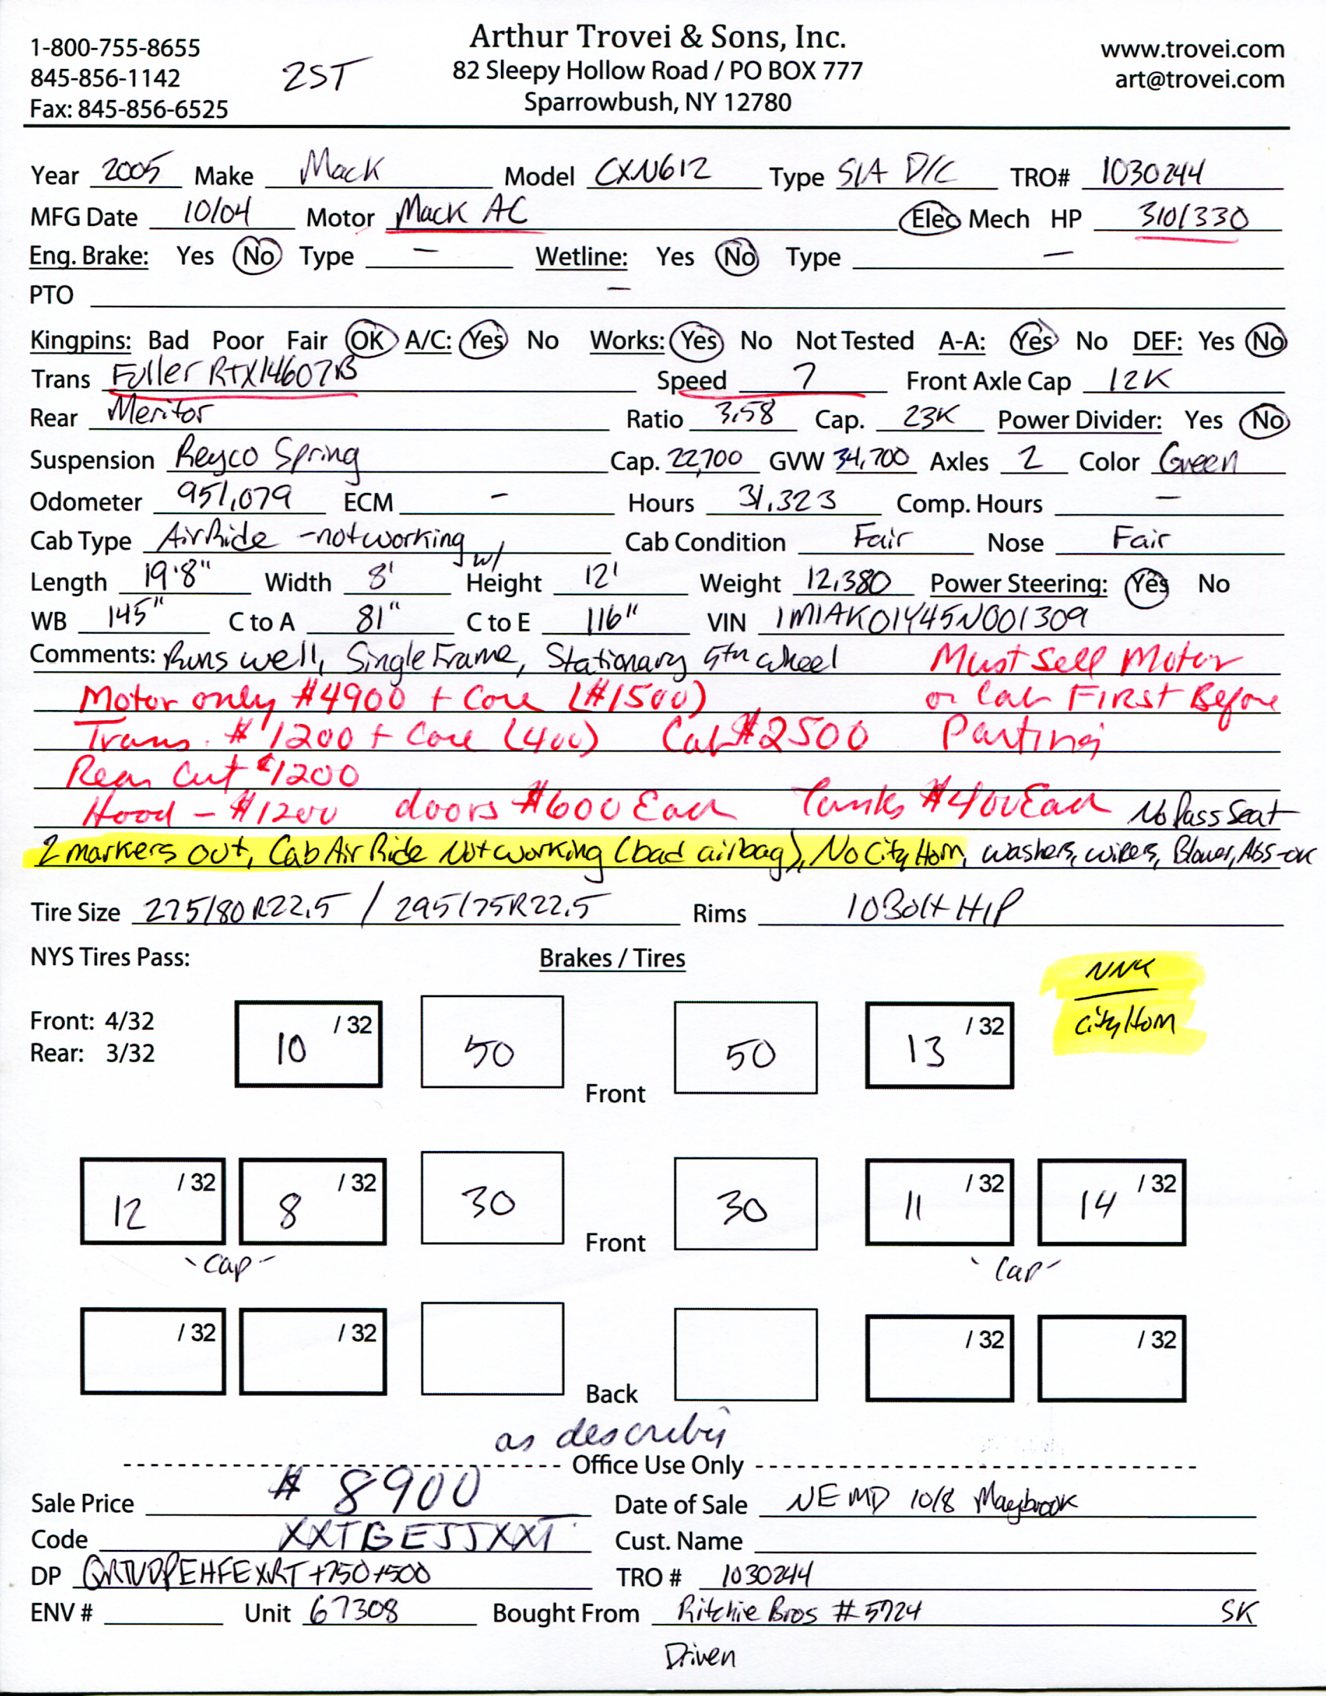 1-800-755-8655
845-856-1142
Fax: 845-856-6525
2ST
Arthur Trovei & Sons, Inc.
82 Sleepy Hollow Road / PO BOX 777
Sparrowbush, NY 12780
www.trovei.com
art@trovei.com
Year 2005 Make Mack Model CXN612 Type S/A D/C TRO# 1030244
MFG Date 10/04 Motor Mack AC Elec Mech HP 310/330
Eng. Brake: Yes No Type – Wetline: Yes No Type –
PTO –
Kingpins: Bad Poor Fair OK A/C: Yes No Works: Yes No Not Tested A-A: Yes No DEF: Yes No
Trans Fuller RTX14607B Speed 7 Front Axle Cap 12K
Rear Meritor Ratio 3.58 Cap. 23K Power Divider: Yes No
Suspension Reyco Spring Cap. 22,700 GVW 34,700 Axles 2 Color Green
Odometer 951,079 ECM – Hours 31,323 Comp. Hours –
Cab Type Air Ride - not working Cab Condition Fair Nose Fair
Length 19'8" Width 8' w/ Height 12' Weight 12,380 Power Steering: Yes No
WB 145" C to A 81" C to E 116" VIN 1M1AK01Y45N001309
Comments: Runs well, Single Frame, Stationary 5th wheel Must Sell Motor
Motor only $4900 + Core ($1500) or Cab First Before
Trans. $1200 + Core (400) Cab $2500 Parting
Rear Cut $1200
Hood - $1200 doors $600 Each Tanks $400 Each No Pass Seat
2 markers out, Cab Air Ride Not working (bad airbag), No City Horn, washers, wipers, Blower, Abs-ok
Tire Size 275/80R22.5 / 295/75R22.5 Rims 10 Bolt H/P
NYS Tires Pass: Brakes / Tires
NNY
City Horn
Front: 4/32
Rear: 3/32
10 /32 50 Front 50 13 /32
12 /32 8 /32 30 Front 30 11 /32 14 /32
-Cap- -Cap-
/32 /32 Back /32 /32
as describ
Office Use Only
Sale Price $8900 Date of Sale NEMD 10/8 Maybrook
Code XXTBEJJXXT Cust. Name
DP +750+500 TRO # 1030244
ENV # Unit 67308 Bought From Ritchie Bros #5724 SK
Driven